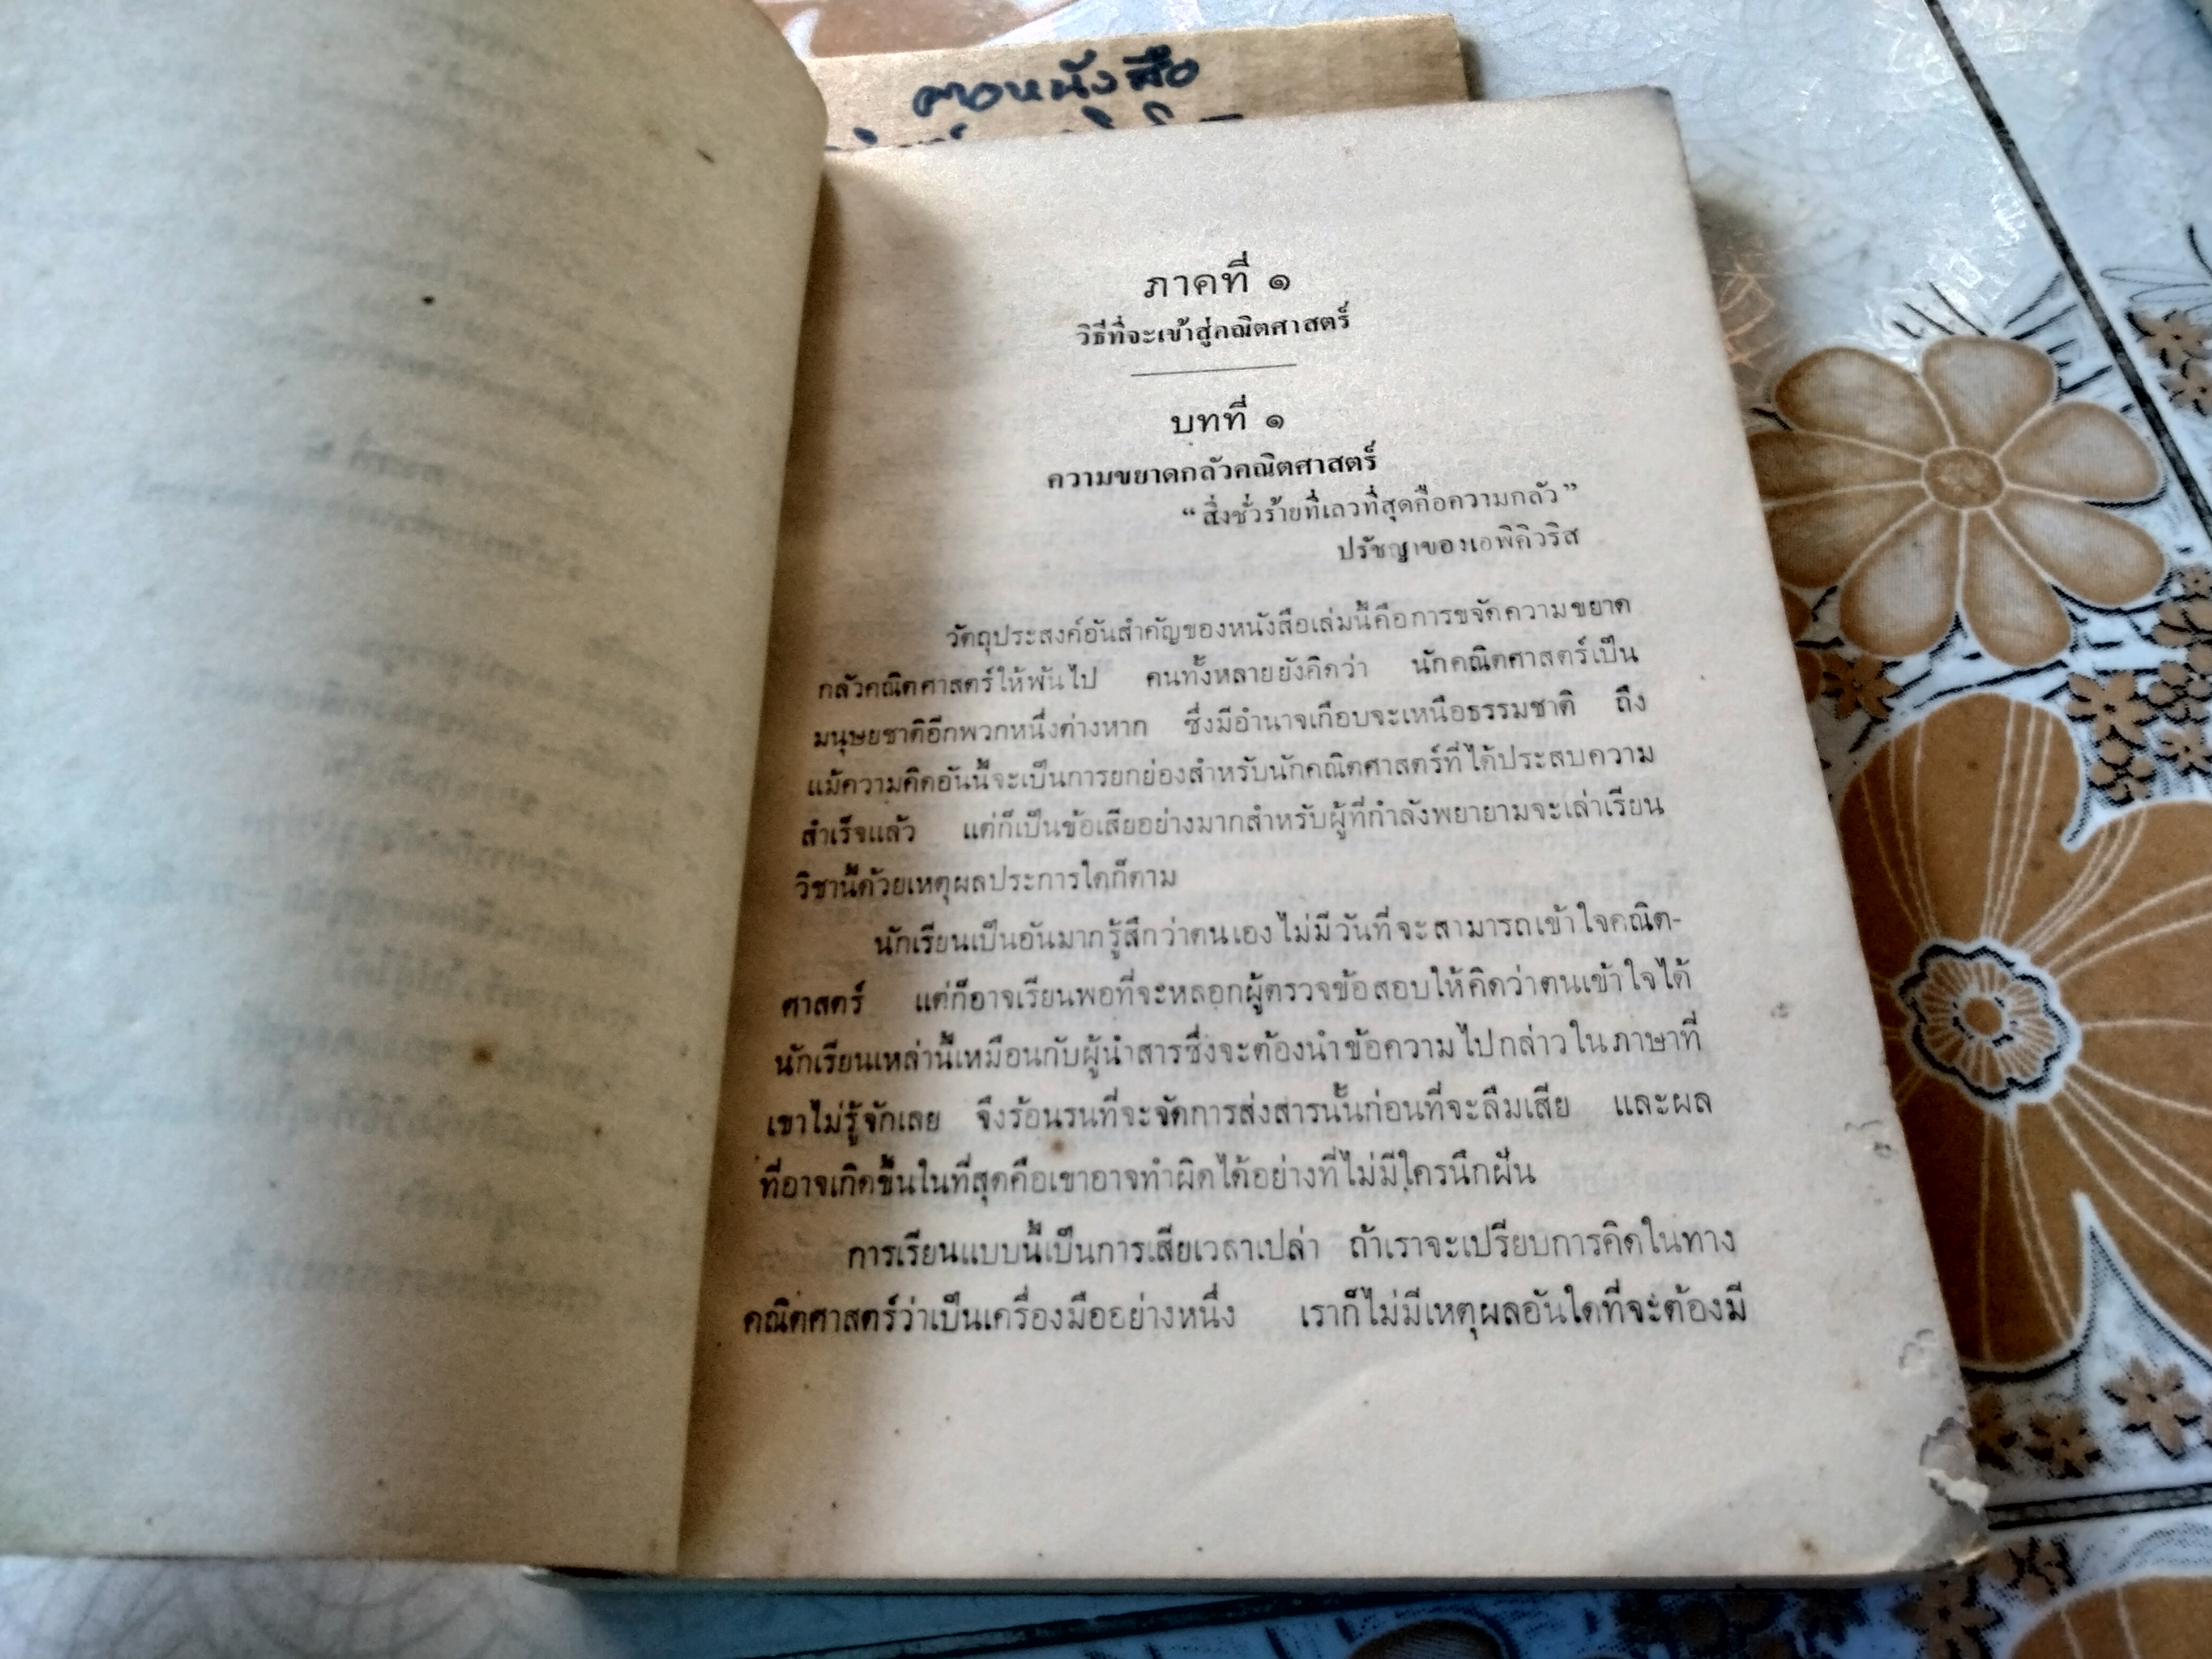 หนังสือ
ภาคที่ ๑
วิธีที่จะเข้าสู่คณิตศาสตร์
บทที่ ๑
ความขยาดกลัวคณิตศาสตร์
“ สิ่งชั่วร้ายที่เลวที่สุดคือความกลัว ”
ปรัชญาของเอพิคิวริส
วัตถุประสงค์อันสำคัญของหนังสือเล่มนี้คือการขจัดความขยาด
กลัวคณิตศาสตร์ให้พ้นไป คนทั้งหลายยังคิดว่า นักคณิตศาสตร์เป็น
มนุษยชาติอีกพวกหนึ่งต่างหาก ซึ่งมีอำนาจเกือบจะเหนือธรรมชาติ ถึง
แม้ความคิดอันนี้จะเป็นการยกย่องสำหรับนักคณิตศาสตร์ที่ได้ประสบความ
สำเร็จแล้ว แต่ก็เป็นข้อเสียอย่างมากสำหรับผู้ที่กำลังพยายามจะเล่าเรียน
วิชานี้ด้วยเหตุผลประการใดก็ตาม
นักเรียนเป็นอันมากรู้สึกว่าตนเองไม่มีวันที่จะสามารถเข้าใจคณิต-
ศาสตร์ แต่ก็อาจเรียนพอที่จะหลอกผู้ตรวจข้อสอบให้คิดว่าตนเข้าใจได้
นักเรียนเหล่านี้เหมือนกับผู้นำสารซึ่งจะต้องนำข้อความไปกล่าวในภาษาที่
เขาไม่รู้จักเลย จึงร้อนรนที่จะจัดการส่งสารนั้นก่อนที่จะลืมเสีย และผล
ที่อาจเกิดขึ้นในที่สุดคือเขาอาจทำผิดได้อย่างที่ไม่มีใครนึกฝัน
การเรียนแบบนี้เป็นการเสียเวลาเปล่า ถ้าเราจะเปรียบการคิดในทาง
คณิตศาสตร์ว่าเป็นเครื่องมืออย่างหนึ่ง เราก็ไม่มีเหตุผลอันใดที่จะต้องมี